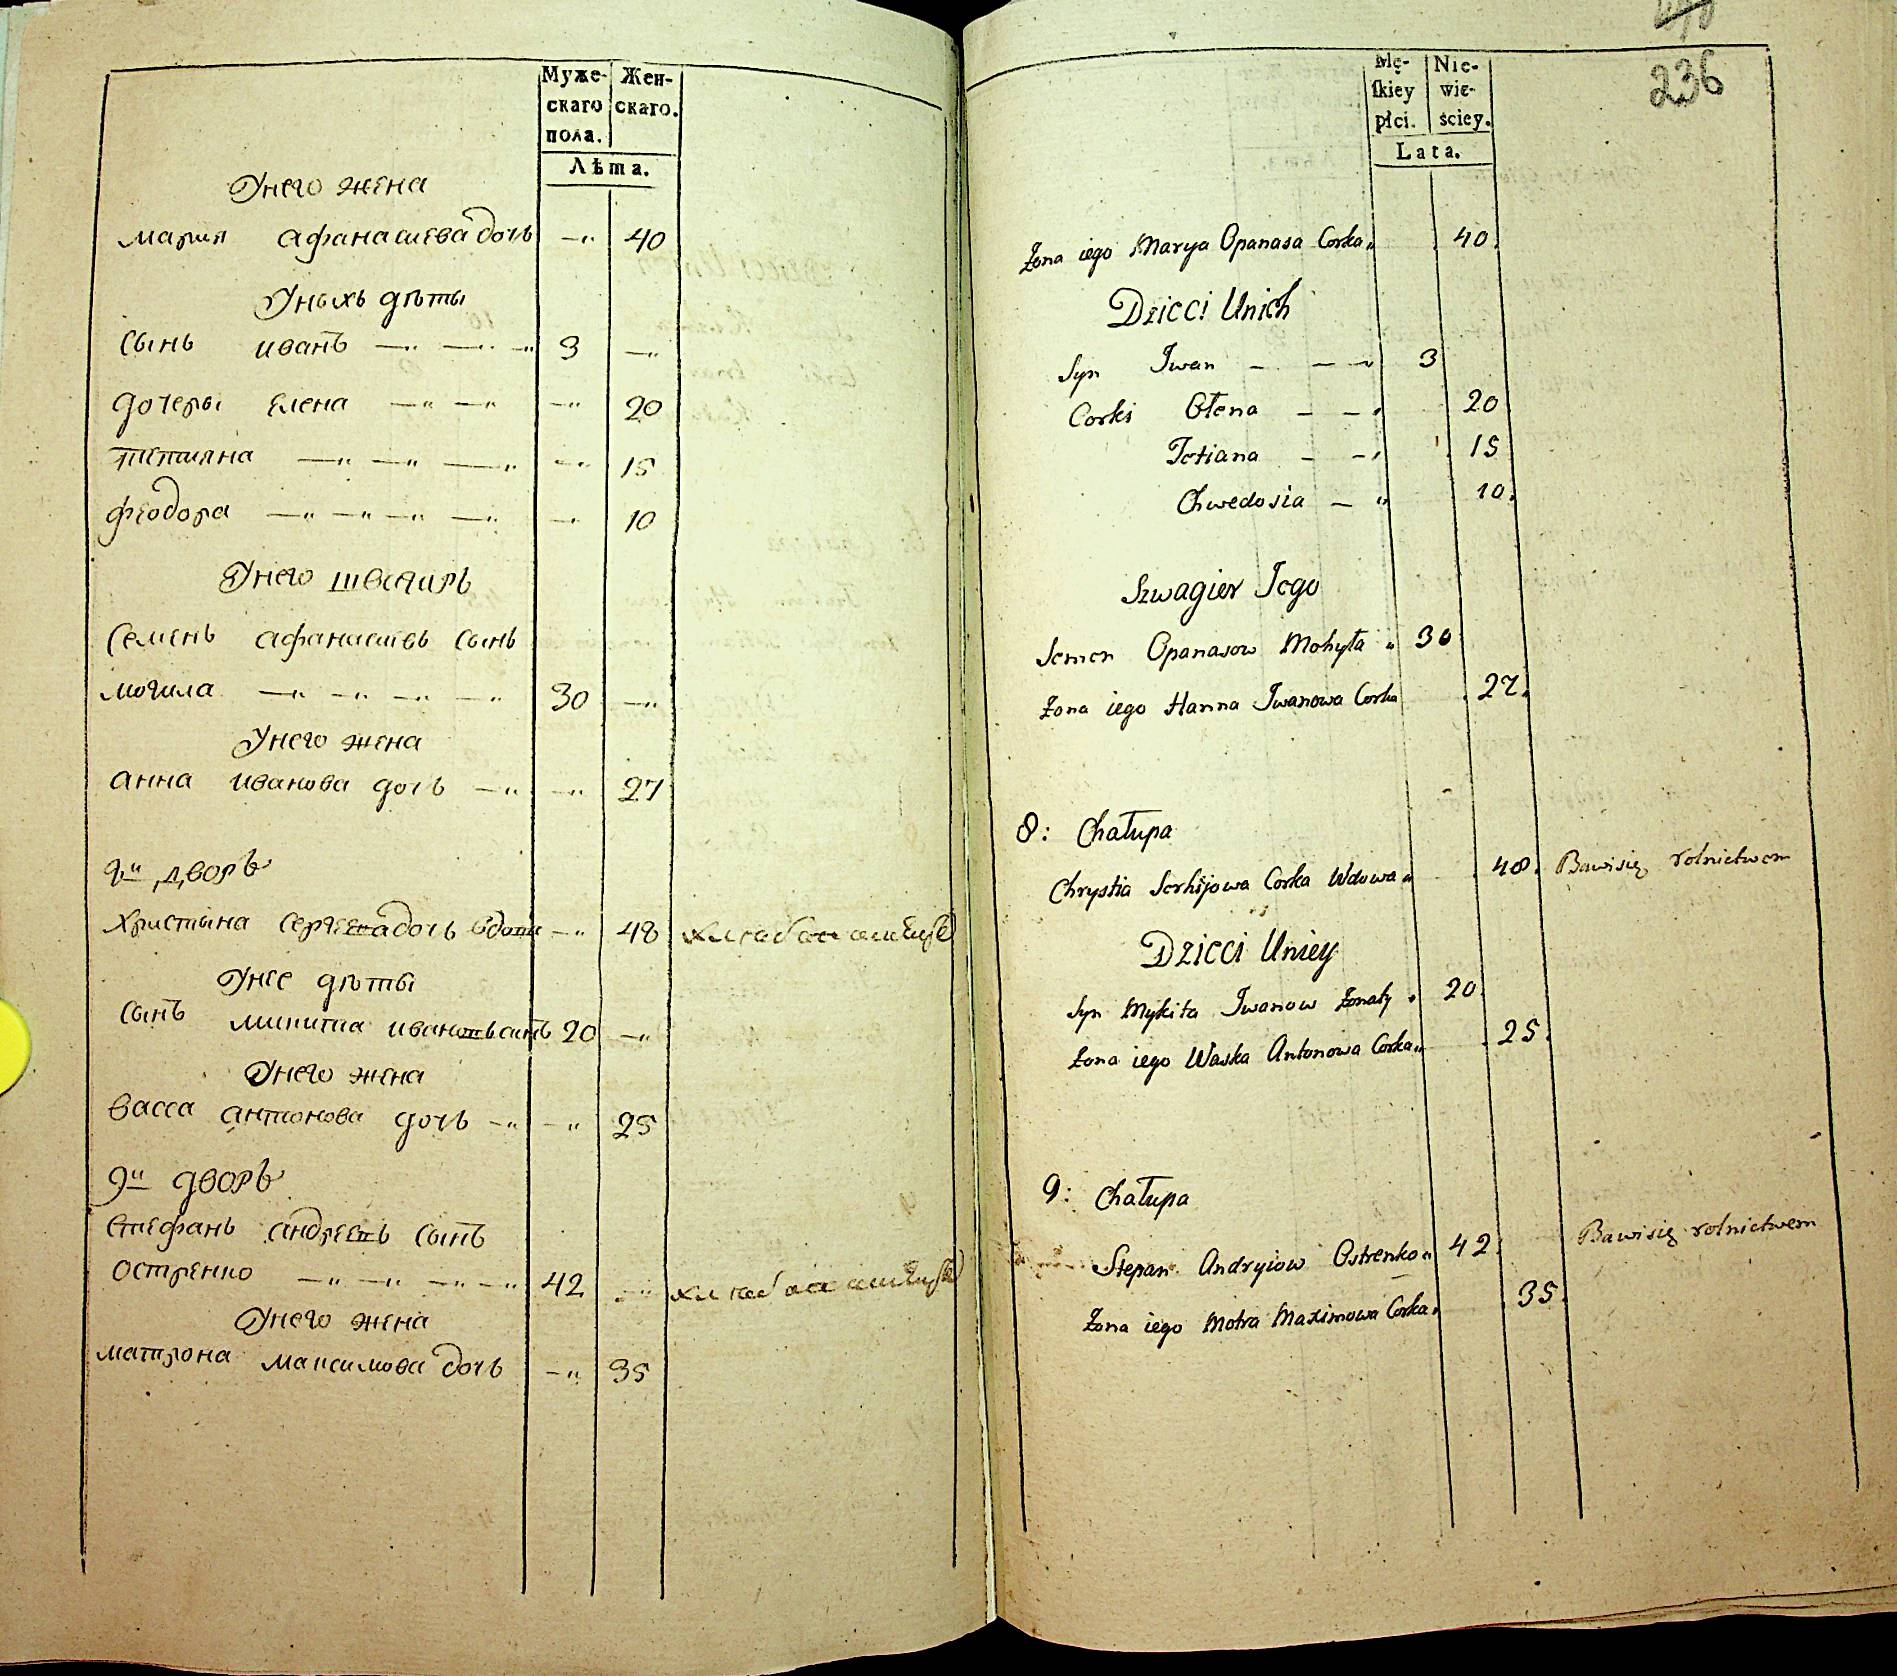 Муже- Жен-
скаго скаго.
пола.
Лѣта.
Унего жена
Мария Афанасиева дочь —„ 40
Уныхъ дѣты
Сынъ иванъ —„ —„ —„ 3 —„
дочеры Елена —„ —„ —„ 20
Тетияна —„ —„ —„ —„ 15
Феодора —„ —„ —„ —„ —„ 10
Унего швагиръ
Семенъ Афанасиевъ сынъ
Могила —„ —„ —„ —„ 30 —„
Унего жена
Анна Иванова дочь —„ —„ 27
8й дворъ
Христына дочь вдова —„ 48
Унее дѣты
Сынъ Микита сынъ 20 —„
Унего жена
Васса Антонова дочь —„ —„ 25
9й дворъ
Стефанъ сынъ
Остренко —„ —„ —„ —„ 42 —„
Унего жена
Матрона Максимова дочь —„ 35
236
Mę- Nie-
skiey wie-
płci. ściey.
Lata.
Żona iego Marya Opanasa Corka„ 40.
Dzieci Unich
Syn Iwan — — —„ 3
Corki Ołena — —„ 20
Tetiana — —„ 15
Chwedosia — „ 10.
Szwagier Jego
Semen Opanasow Mohyła „ 30
Żona iego Hanna Iwanowa Corka 27.
8: Chałupa
Chrystia Serhijowa Corka Wdowa„ 48. Bawisię rolnictwem
Dzieci Uniey
Syn Mykita Iwanow Żonaty „ 20
Żona iego Waska Antonowa Corka„ 25.
9: Chałupa
Stepan Andryiow Ostrenko„ 42. Bawisię rolnictwem
Żona iego Motra Maximowa Corka„ 35.